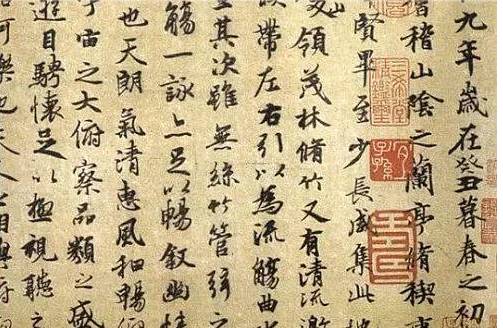 九年歲在癸丑暮春之初
稽山陰之蘭亭脩稧
賢畢至少長咸集此地
領茂林脩竹又有清流激
帶左右引以為流觴曲水
其次雖無絲竹管弦之
觴一詠亦足以暢敘幽情
也天朗氣清惠風和暢仰
宇宙之大俯察品類之盛
遊目騁懷足以極視聽之
可樂也夫人之相與俯
三希堂精鑑璽
宜子孫